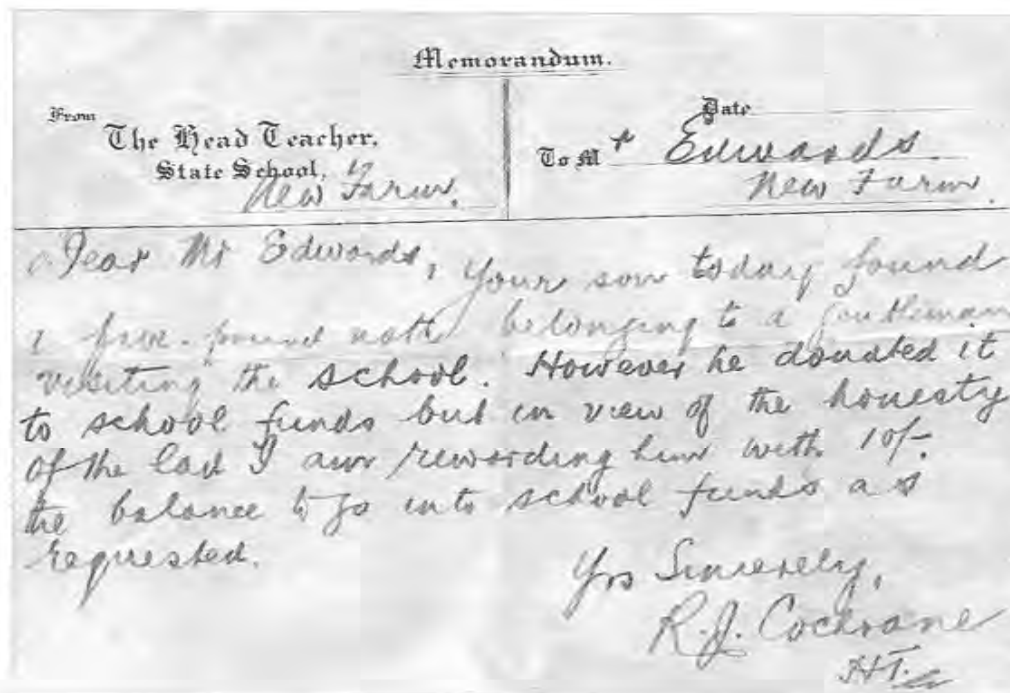 Memorandum.
From
The Head Teacher,
State School,
New Farm.
Date
To Mr Edwards.
New Farm
Dear Mr Edwards, Your son today found
a five-pound note belonging to a gentleman
visiting the school. However he donated it
to school funds but in view of the honesty
of the lad I am rewarding him with 10/-
the balance to go into school funds as
requested.
Yrs Sincerely,
R.J. Cochrane
HT.